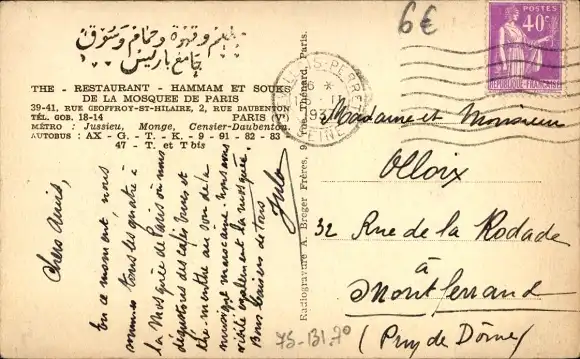 مطعم وقهوة وحمام وسوق
جامع باريس
THE - RESTAURANT - HAMMAM ET SOUKS
DE LA MOSQUEE DE PARIS
39-41, RUE GEOFFROY-ST-HILAIRE, 2, RUE DAUBENTON
TÉL. GOB. 18-14 PARIS (Vᵉ)
MÉTRO : Jussieu, Monge, Censier-Daubenton.
AUTOBUS : AX - G. - T. - K. - 9 - 91 - 82 - 83
47 - T. et T bis
Chers amis,
En ce moment, nous
sommes tous les quatre à
la Mosquée de Paris où nous
dégustons des cafés turcs et
thé-menthe au son de la
musique marocaine. Nous avons
visité également la mosquée.
Bons baisers de tous
Radiogravure A. Breger Frères, 9, rue Thénard, Paris.
6€
POSTES
40c
REPUBLIQUE FRANÇAISE
SEINE
Madame et Monsieur
Olloix
32 Rue de la Rodade
à
Montferrand
(Puy de Dôme)
75-131.70